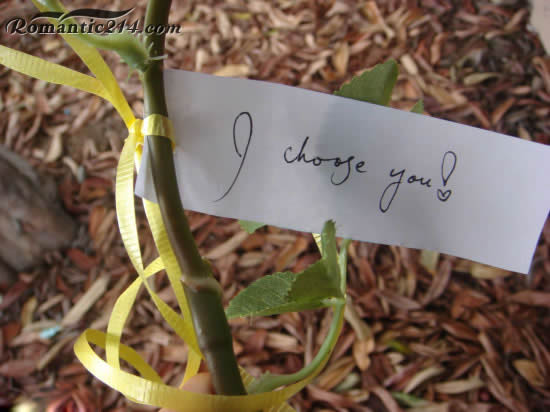 Romantic214.com
I choose you!